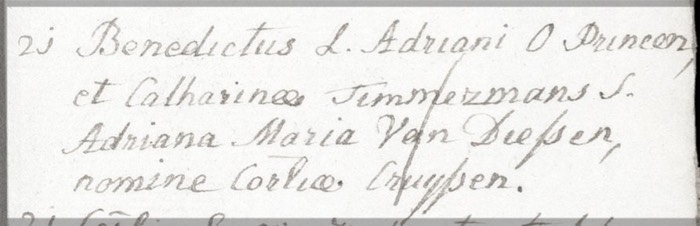 21 Benedictus L. Adriani O Princen,
et Catharinæ Timmermans S.
Adriana Maria Van Dießen,
nomine Corliæ Cruyßen.